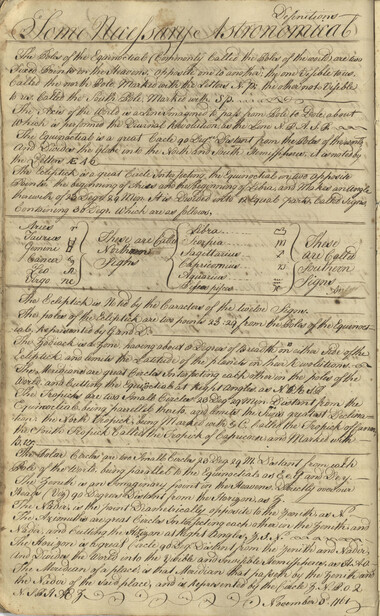 Definitions
Some Necessary Astronomical
The Poles of the Equinoctial (Commonly Called the Poles of the world) are two
Fixed Points in the Heavens, opposite one to another, the one Visible to us
Called the north Pole Marked with the Letters N P. the other not Visible
to us Called the South Pole Marked with S P.
The Axis of the World is a Line imagined to pass from Pole to Pole, about
which is performed the Diurnal Revolution as the Line N P A S P
The Equinoctial is a great Circle 90 Degs Distant from the Poles of the world
And Divides the globe into the North and South Hemispheres, it is noted by
the Letters Æ A 6
The Ecliptick is a great Circle Intersecting the Equinoctial in two opposite
Points, the beginning of Aries and the beginning of Libra, and Makes an Angle
therewith of 23 Degs 29 Min it is Divided into 12 Equal parts, Called Signs,
Containing 30 Degs Which are as follows.
Aries ♈ Libra ♎
Taurus ♉ These are Called Scorpia ♏ These
Gemini ♊ Northern Sagittarius are Called
Cancer ♋ Signs Capricornus Southern
Leo ♌ Aquarius Signs
Virgo ♍ Pisces
The Ecliptick is Noted by the Caracters of the twelve Signs.
The poles of the Ecliptick are two points 23:29 from the Poles of the Equinoc-
tial, represented by G and L
The Zodiack is a Zone, having about 8 Degrees of breadth, on either Side of the
Ecliptick and limits the Latitude of the planets in their Revolutions
The Meridians are great Circles Intersecting each other in the poles of the
World, and Cutting the Equinoctial at Right Angles as
The Tropicks are two Small Circles 23 Deg 29 Min Distant from the
Equinoctial, being parallel thereto, and limits the Suns greatest Declina-
tion. the North Tropick being Marked with G C Called the Tropick of Cancer
the South Tropick Called the Tropick of Capricorn and Marked with
The Polar Circles are two Small Circles 23 Deg 29 M. Distant from each
Pole of the World, being parallel to the Equinoctial as
The Zenith is an Immaginary point in the Heavens Directly over our
Heads (Viz) 90 Degrees Distant from the Horizon as Z.
The Nadir is the point Diametrically opposite to the Zenith as N
The Azimuths are great Circles Intersecting each other in the Zenith and
Nadir, and Cutting the Horizon at Right Angles
The Horizon is a great Circle 90 Degs Distant from the Zenith and Nadir,
and Divides the World into the Visible and Invisible Hemispheres, as
The Meridian of a place, is that Meridian that passeth by the Zenith and
the Nadir of the Said place, and is represented by the Circle
November 15th 1761